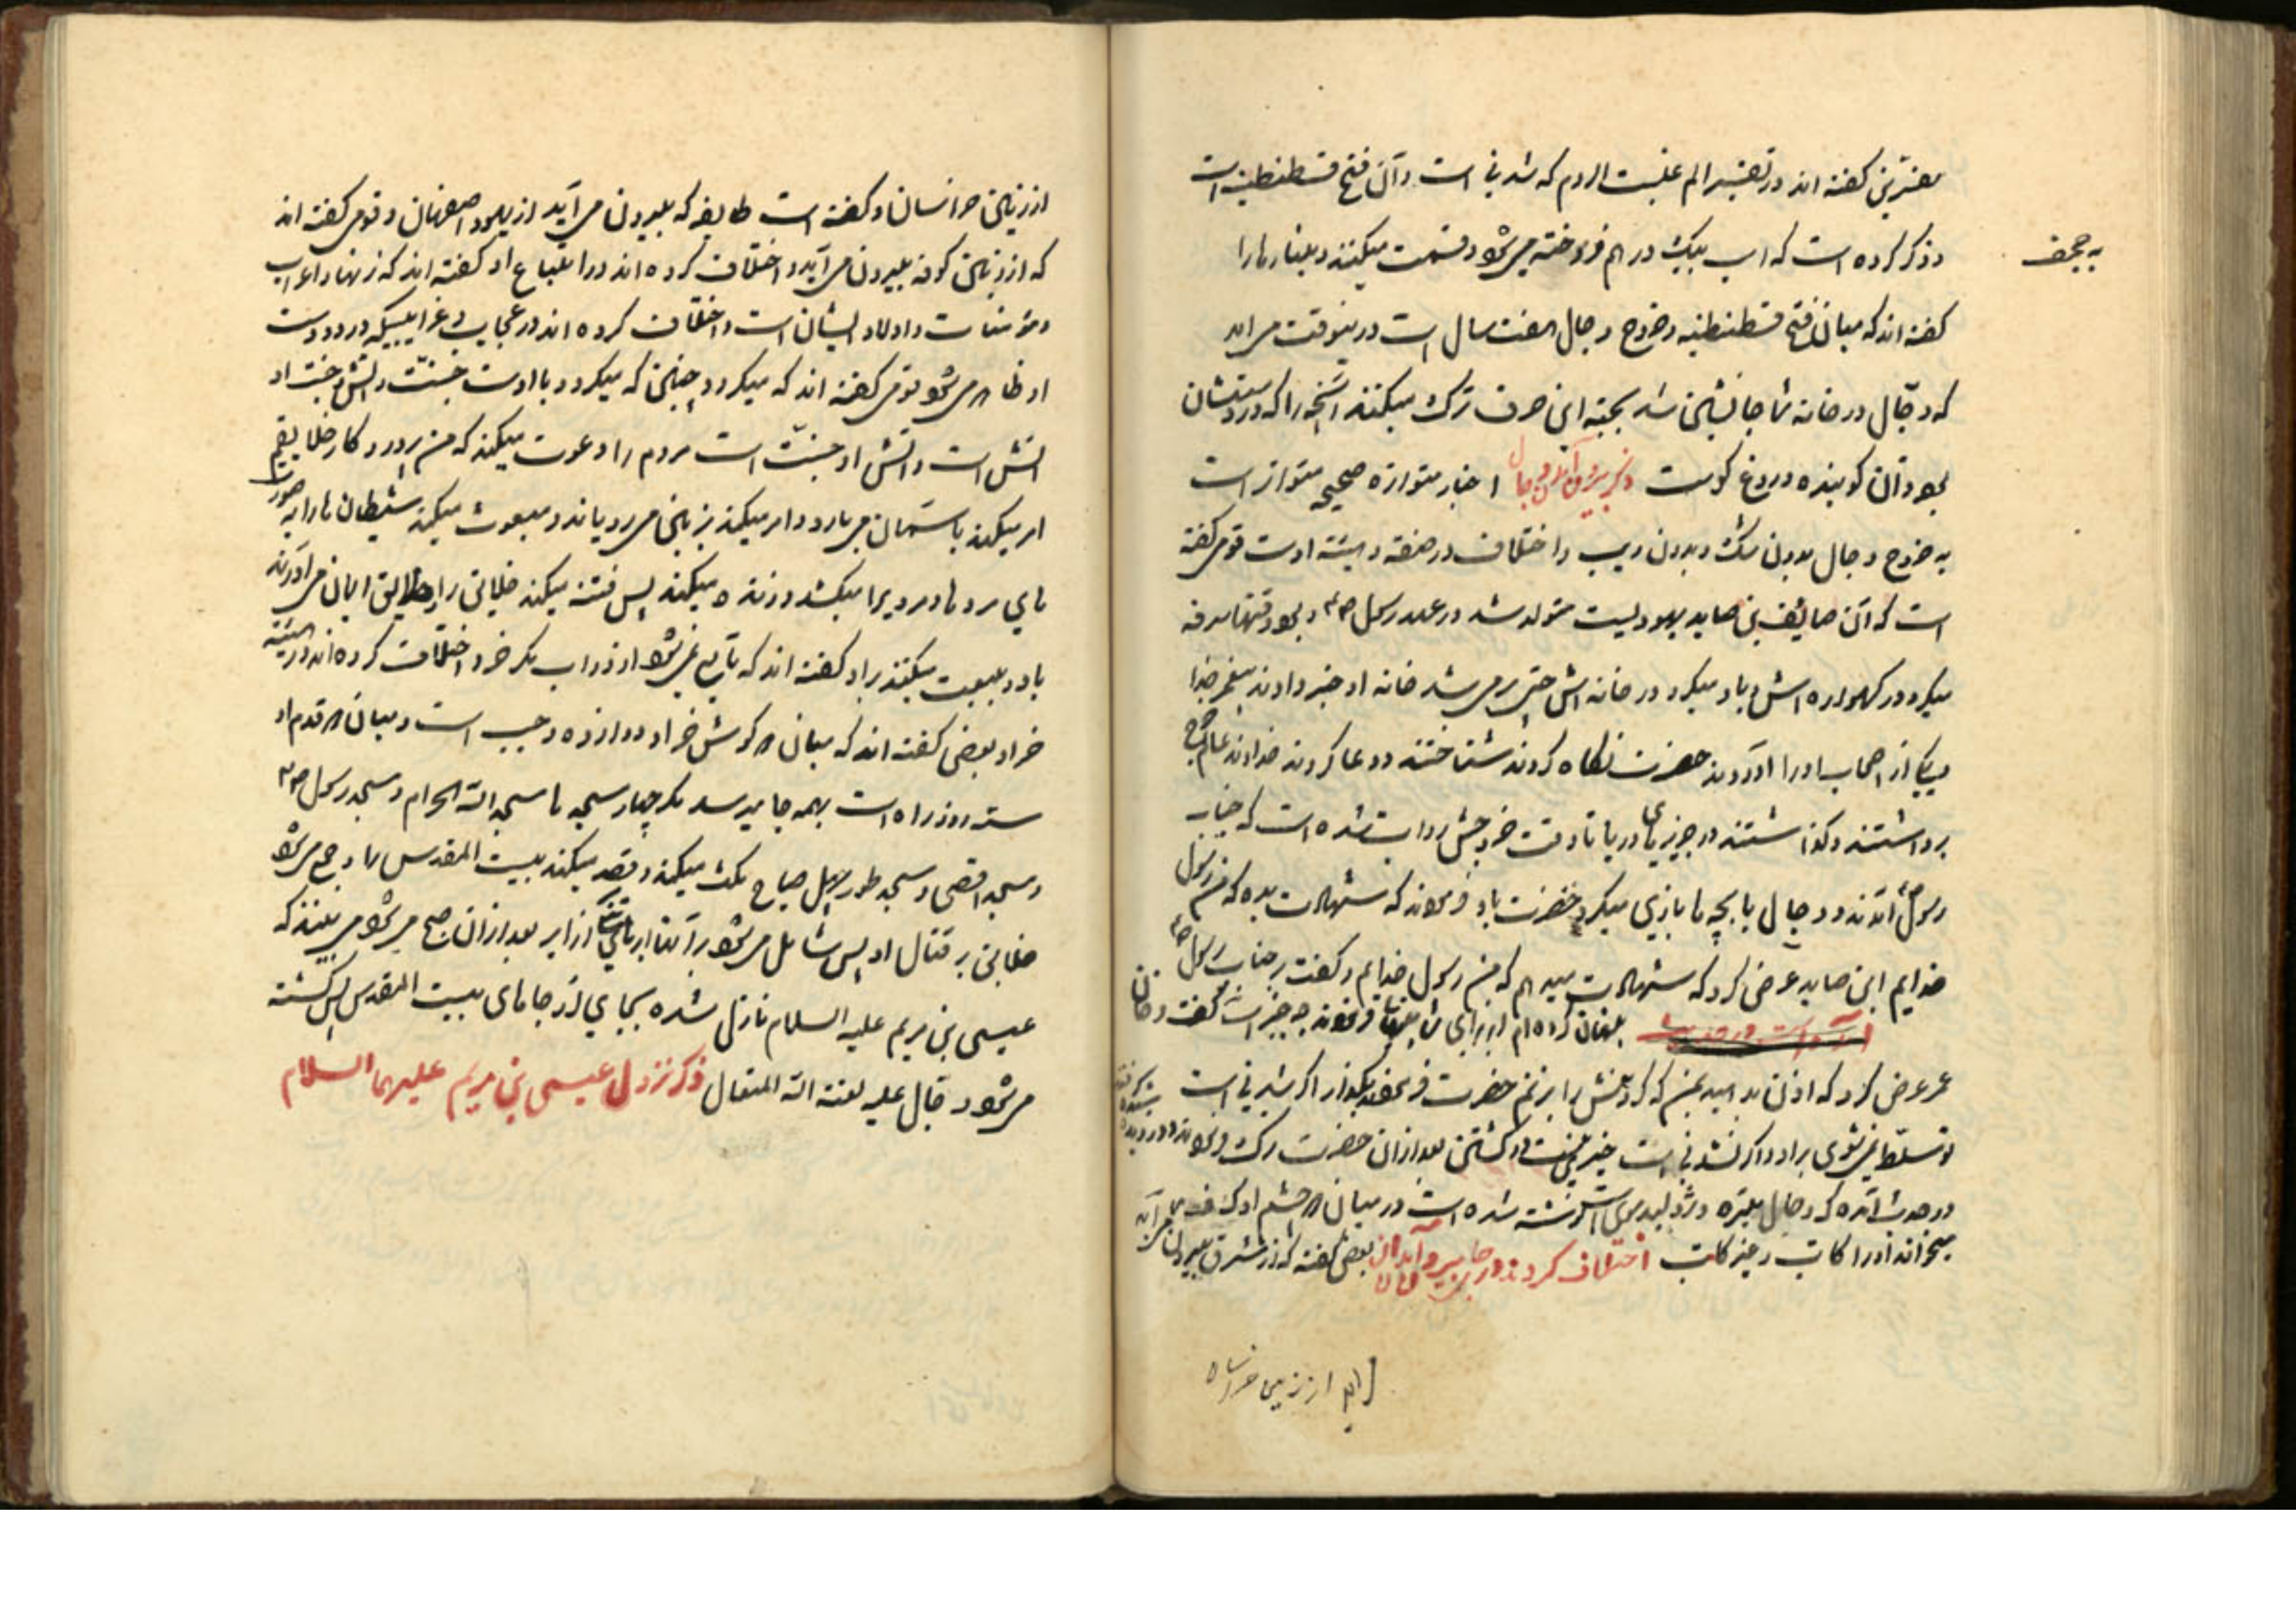 مفسرین گفته اند در تفسیر الم غلبت الروم که شدنی است و آن فتح قسطنطنیه است
و ذکر کرده است که اسب بیک درهم فروخته میشود و قسمت میکنند دینارها را
به حجف
گفته اند که میان فتح قسطنطنیه و خروج دجال هفت سال است در ینوقت می اید
که دجّال در خانه شما جانشین شد بجهة این حرف ترک میکنند آنچه را که در دستشان
بود و آن گوینده دروغ گوست ذکر بیرون آمدن دجال اخبار متواتره صحیحه متواتر است
به خروج دجال بدون شک و بدون ریب و اختلاف در صفة و هیئة اوست قومی گفته
است که آن صایف بن صاید یهودیست متولد شد در عهد رسول صلم و بود
میکرد در گهواره اش و باد میکرد در خانه اش حتی پر می شد خانه او خبر دادند پیغمبر خدا
از اصحاب او را آوردند حضرت نگاه کردند شناختند و دعا کردند خداوند عالم
برداشتند و گذاشتند در جزیره های دریا تا وقت خروجش روایت شده است که جناب
رسول آمدند و دجال با بچه ها بازی میکرد حضرت باو فرمودند که شهادت بده که من رسول
خدایم ابن صاید عرض کرد که شهادت میدهم که من رسول خدایم و گفت بر جناب رسول صلم
پنهان کرده ام از برای شما فرمودند چه چیز است گفت دخان
عمر عرض کرد که اذن بدهید بمن که گردنش را بزنم حضرت فرمودند بگذار اگر شدنی است
تو تسلّط نمی شوی بر او و اگر نشدنی است خیر نیست در کشتن بعد از آن حضرت ترک فرمودند
در حدیث آمده که دجال نوشته شده است در میان هر چشم او ک ف ر
میخواند او را کاتب و غیر کاتب اختلاف کردند در جای بیرون آمدن آن بعضی گفته که از مشرق بیرون می آید
اید از زمین خراسان
از زمین خراسان و گفته است طایفه که بیرون می آید از یهود اصفهان و قومی گفته اند
که از زمین کوفه بیرون می آید و اختلاف کرده اند در اتباع او گفته اند که زنها و اعراب
و مؤمنات و اولاد ایشان است و اختلاف کرده اند در عجایب و غرایبیکه در دست
او ظاهر می شود قومی گفته اند که میگردد چنین که میگردد با اوست جنّت و آتش جنت او
آتش است و آتش او جنّت است مردم را دعوت میکند که من پروردگار خلایقم
امر میکند باسمان می بارد و امر میکند بزمین می رویاند و مبعوث میکند شیطان ها را به صورت
های مرده و مردیرا میکشد و زنده میکند پس فتنه میکند خلایق را ایمان می آورند
باو و بیعت میکنند با او گفته اند که تابع نمی شود او را دواب مگر خر و اختلاف کرده اند در هیئة
خر او بعضی گفته اند که میان هر گوش خر او دوازده وجب است و میان هر قدم او
سه روز راه است بهمه جا میرسد مگر چهار مسجد ها مسجد الله الحرام و مسجد رسول صلم
و مسجد اقصی و مسجد طور چهل صباح مکث میکند و قصد میکند بیت المقدس را و جمع میشود
خلایق بر قتال او پس شامل می شود بر آنها از ابر بعد از آن صبح می شود می بینند که
عیسی بن مریم علیه السلام نازل شده بجای از جاهای بیت المقدس پس کشته
می شود دجال علیه لعنة الله المتعال ذکر نزول عیسی بن مریم علیهما السلام